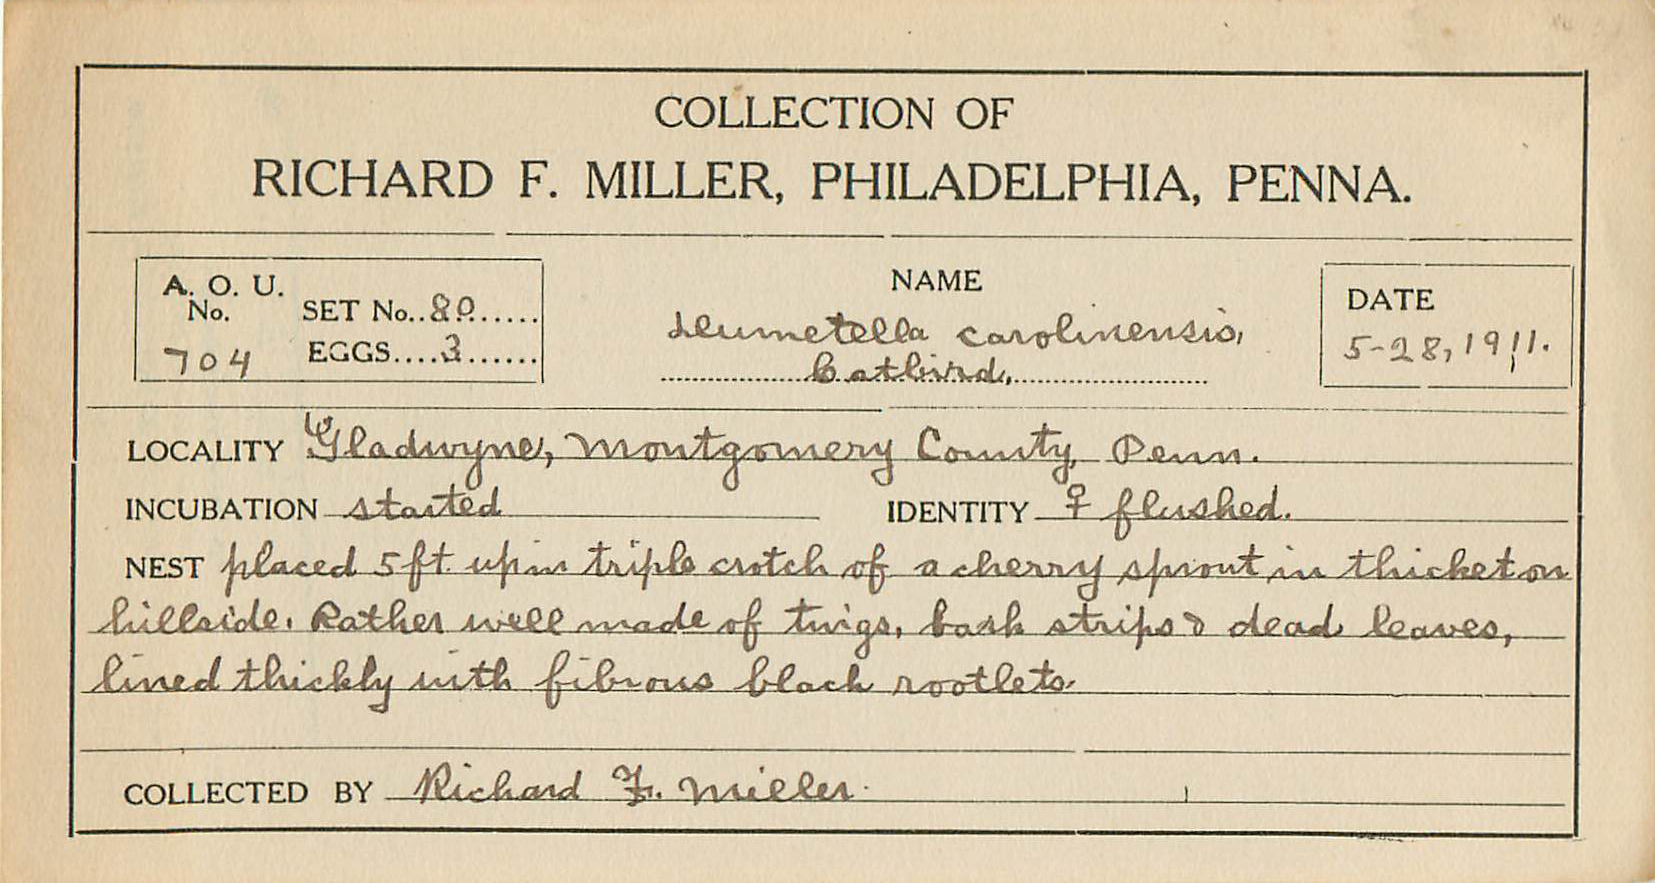 COLLECTION OF
RICHARD F. MILLER, PHILADELPHIA, PENNA.
A. O. U.
No.
704
SET No..80......
EGGS....3......
NAME
Dumetella carolinensis,
Catbird,
DATE
5-28, 1911.
LOCALITY Gladwyne, Montgomery County, Penn.
INCUBATION started
IDENTITY ♀ flushed.
NEST placed 5 ft. up in triple crotch of a cherry sprout in thicket on
hillside. Rather well made of twigs, bark strips & dead leaves,
lined thickly with fibrous black rootlets.
COLLECTED BY Richard F. Miller.